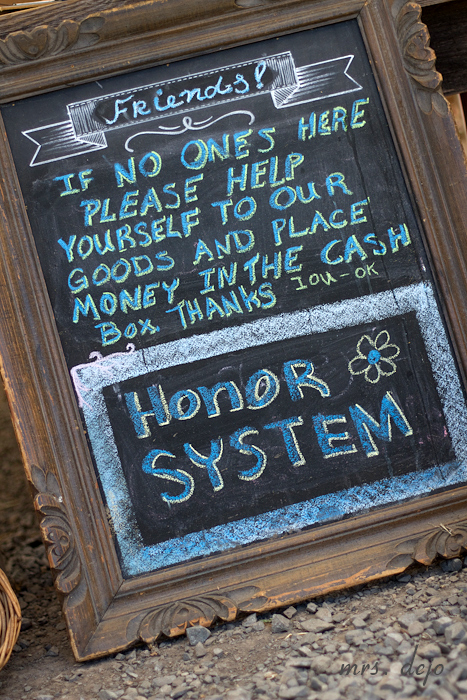 Friends!
IF NO ONES HERE
PLEASE HELP
YOURSELF TO OUR
GOODS AND PLACE
MONEY IN THE CASH
BOX THANKS IOU-OK
HONOR
SYSTEM
mrs. dcjo